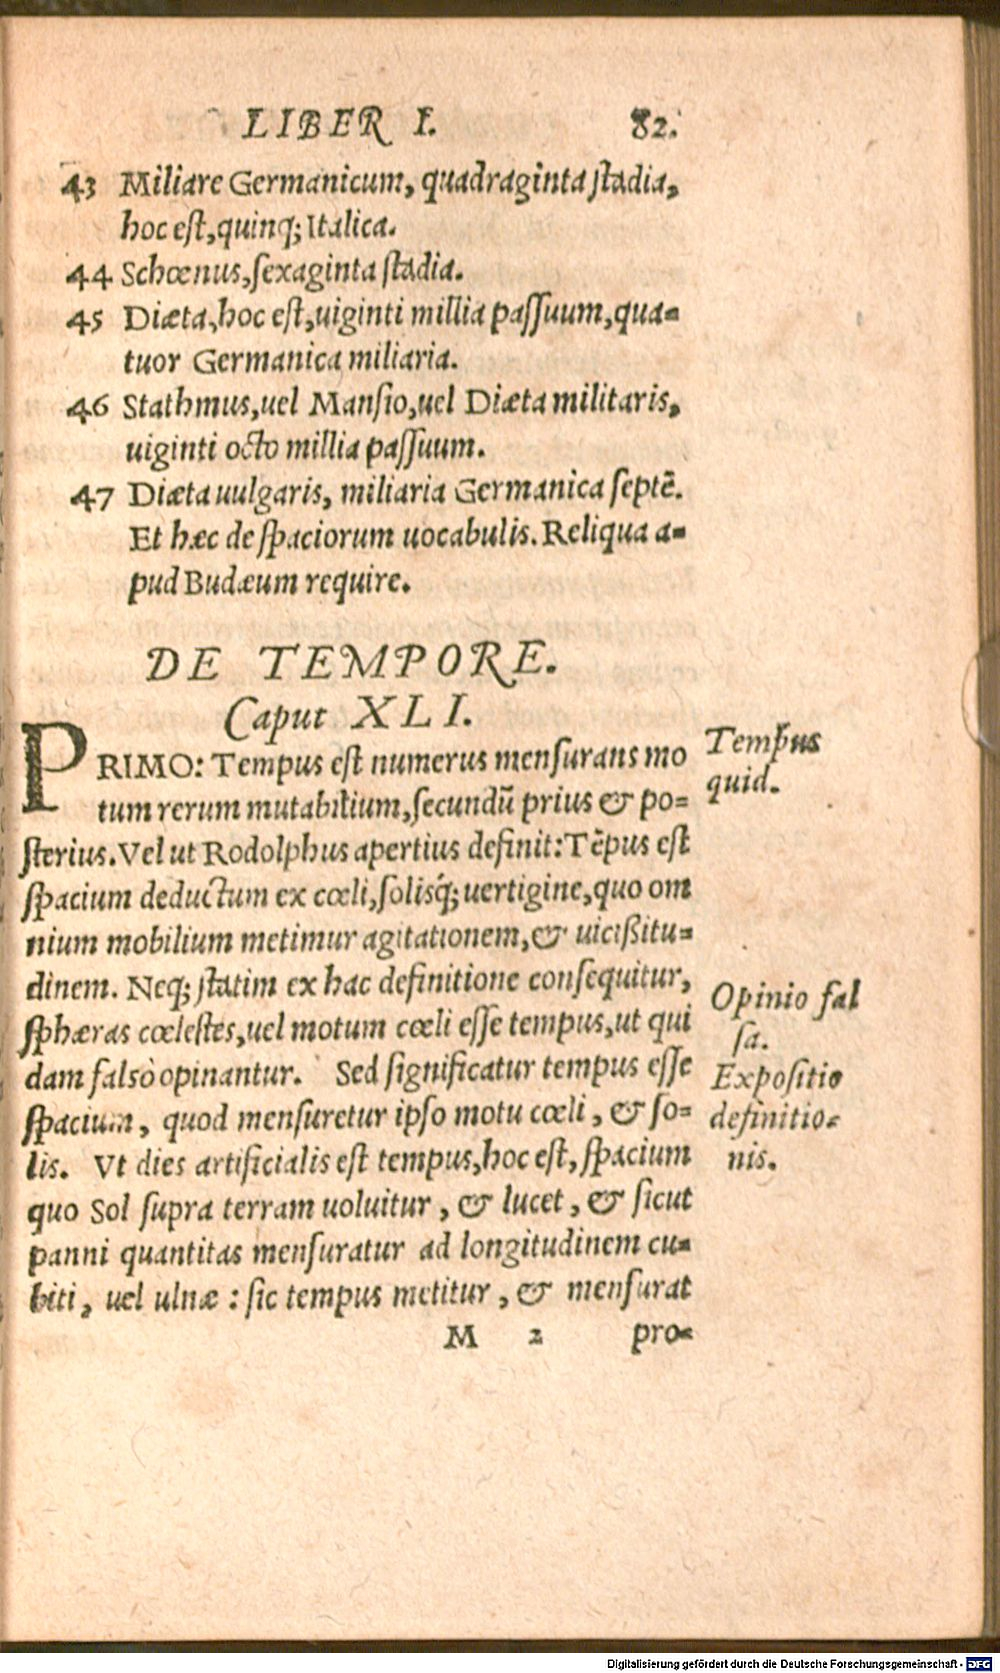 LIBER I. 82.
43 Miliare Germanicum, quadraginta stadia,
hoc est, quinq; Italica.
44 Schœnus, sexaginta stadia.
45 Diæta, hoc est, uiginti millia passuum, qua-
tuor Germanica miliaria.
46 Stathmus, uel Mansio, uel Diæta militaris,
uiginti octo millia passuum.
47 Diæta uulgaris, miliaria Germanica septẽ.
Et hæc de spaciorum uocabulis. Reliqua a-
pud Budæum require.
DE TEMPORE.
Caput XLI.
PRIMO: Tempus est numerus mensurans mo
tum rerum mutabilium, secundũ prius & po-
sterius. Vel ut Rodolphus apertius definit: Tẽpus est
spacium deductum ex cœli, solisq́; uertigine, quo om
nium mobilium metimur agitationem, & uicißitu-
dinem. Neq; statim ex hac definitione consequitur,
sphæras cœlestes, uel motum cœli esse tempus, ut qui
dam falsò opinantur. Sed significatur tempus esse
spacium, quod mensuretur ipso motu cœli, & so-
lis. Vt dies artificialis est tempus, hoc est, spacium
quo Sol supra terram uoluitur, & lucet, & sicut
panni quantitas mensuratur ad longitudinem cu-
biti, uel ulnæ: sic tempus metitur, & mensurat
M 2 pro-
Tempus
quid.
Opinio fal
sa.
Expositio
definitio-
nis.
Digitalisierung gefördert durch die Deutsche Forschungsgemeinschaft - DFG